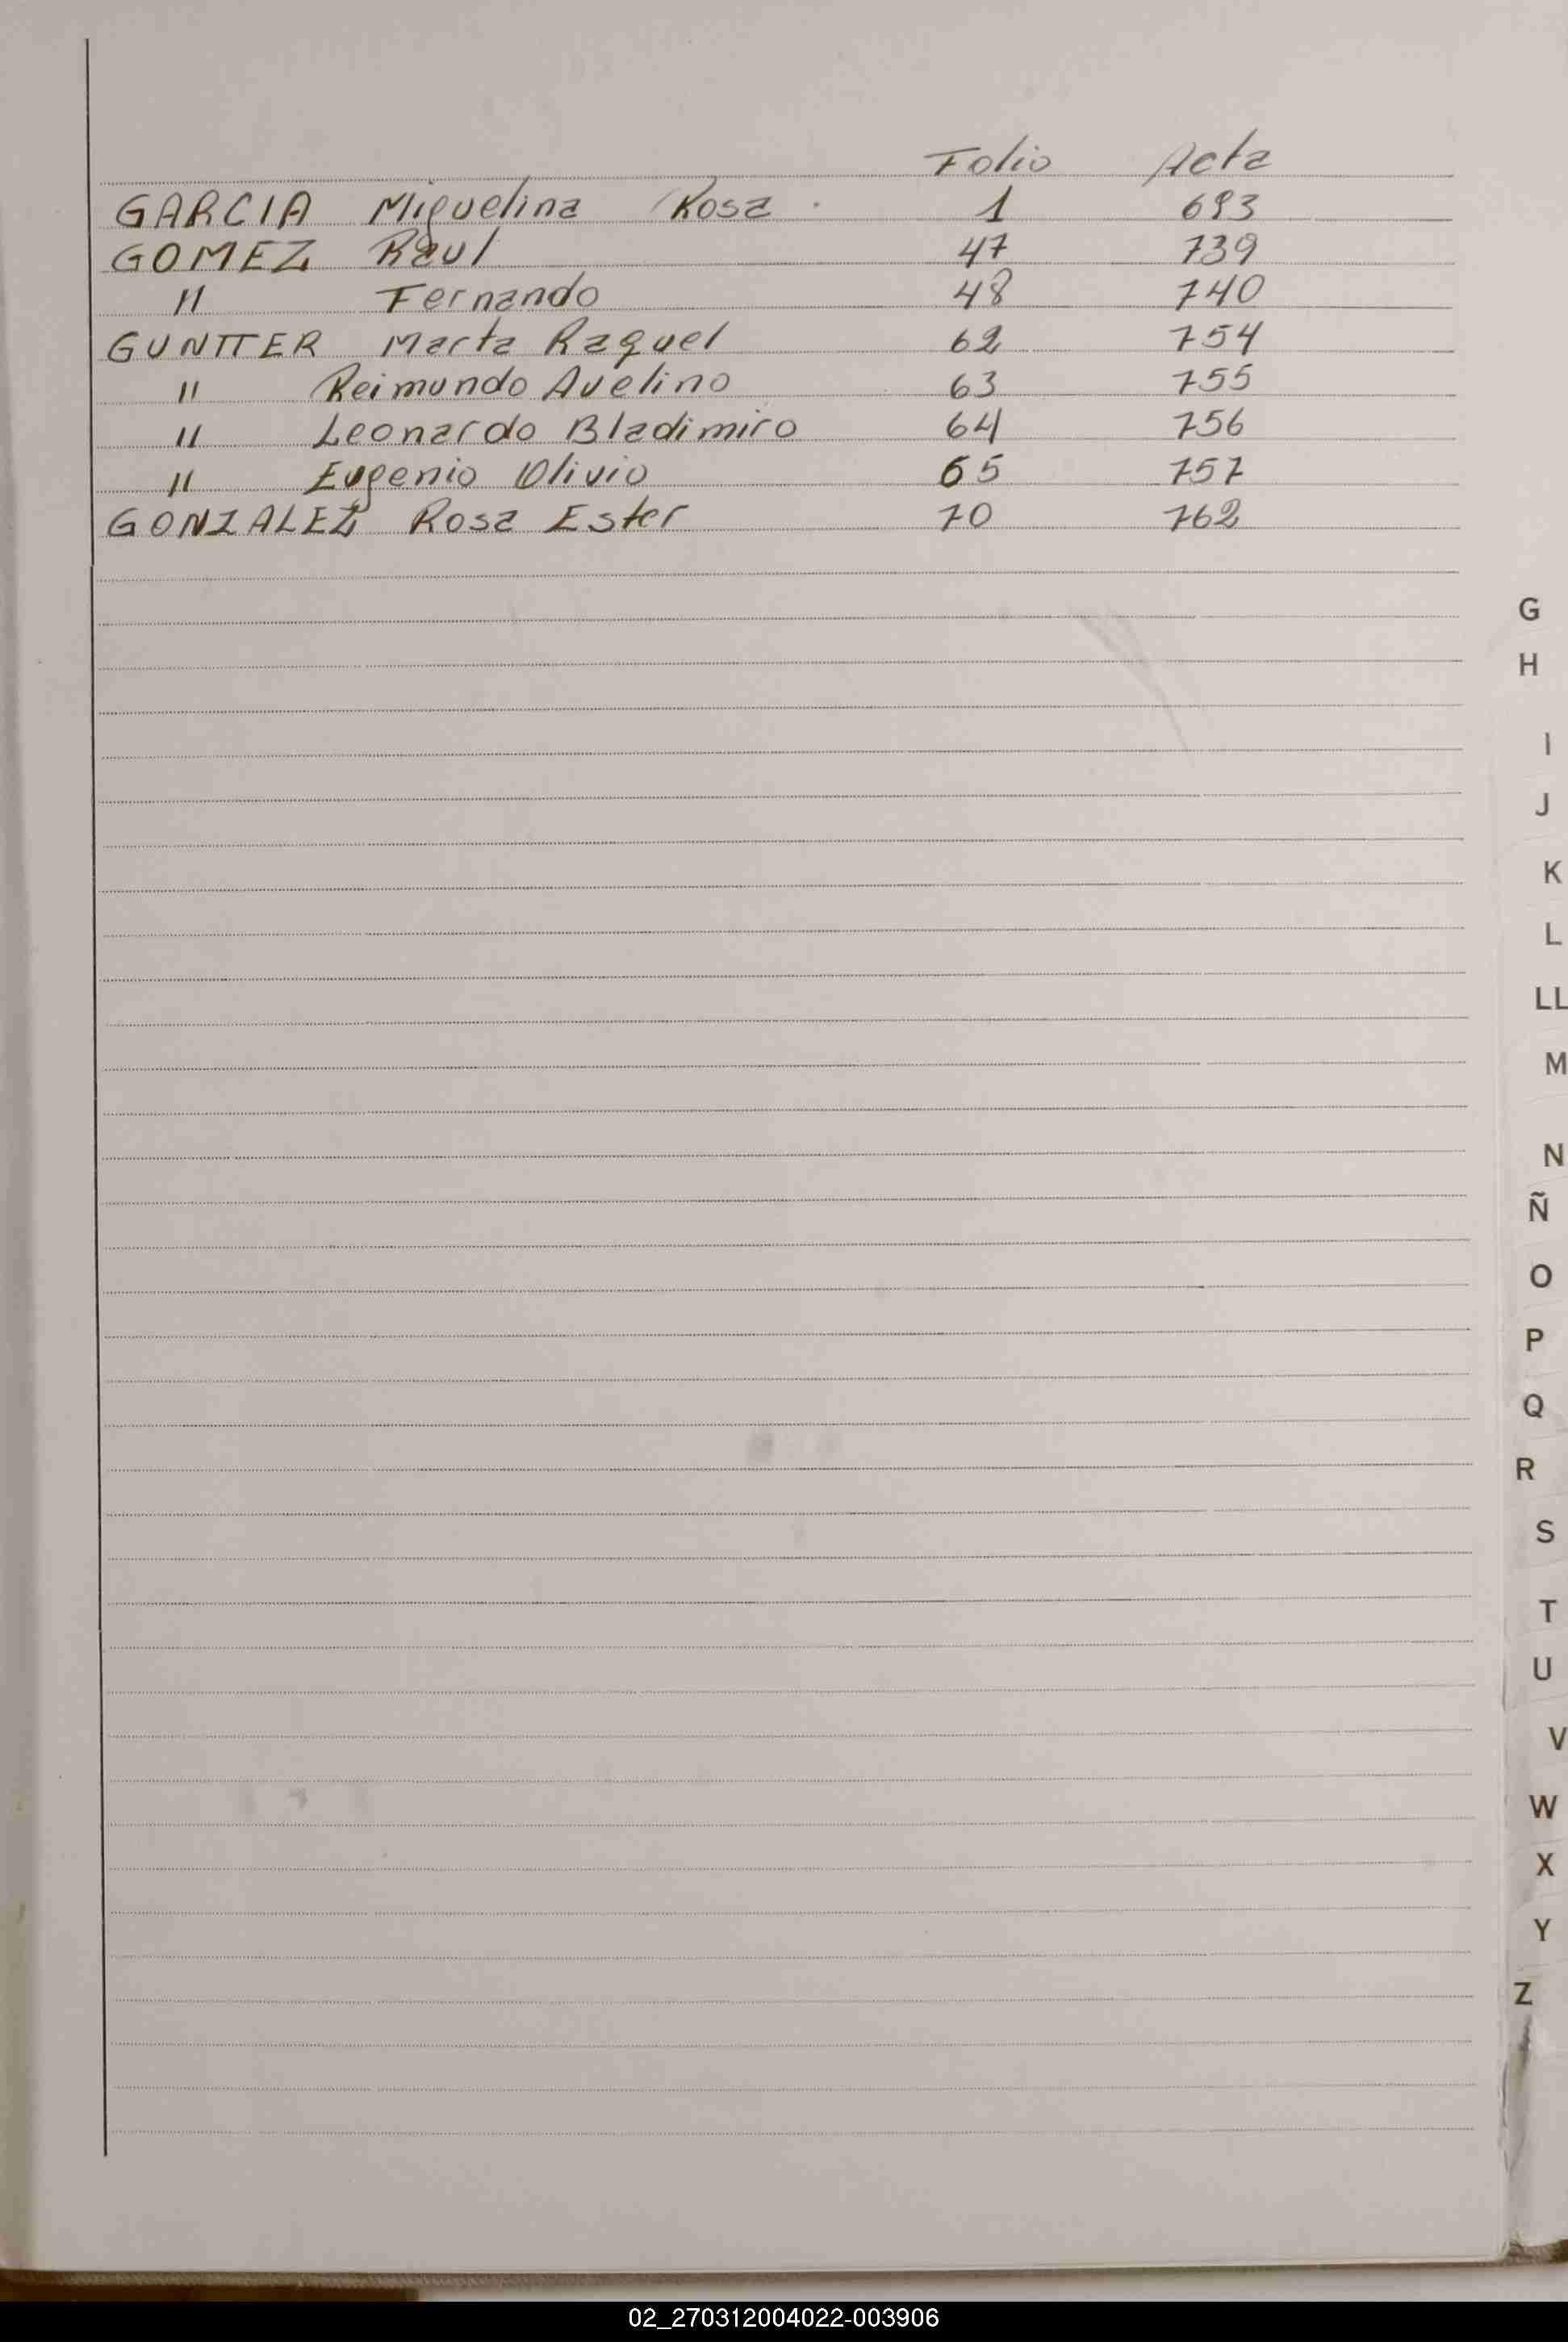 Folio Acta
GARCIA Miguelina Rosa . 1 693
GOMEZ Raul 47 739
" Fernando 48 740
GUNTTER Marta Raquel 62 754
" Reimundo Avelino 63 755
" Leonardo Bladimiro 64 756
" Eugenio Olivio 65 757
GONZALEZ Rosa Ester 70 762
G
H
I
J
K
L
LL
M
N
Ñ
O
P
Q
R
S
T
U
V
W
X
Y
Z
02_270312004022-003906